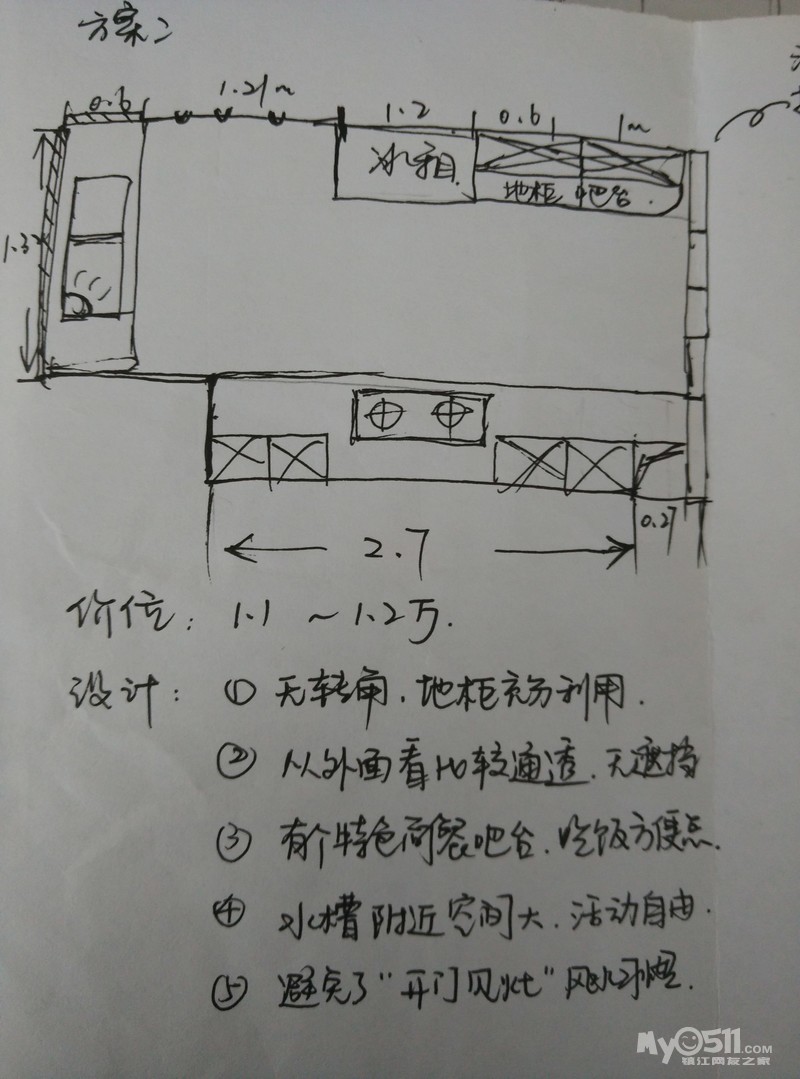 方案二
0.6
1.21m
1.2
0.6
1m
冰箱
地柜 吧台
1.3
2.7
0.27
价位：1.1～1.2万.
设计：① 无转角.地柜充分利用.
② 从外面看比较通透.无遮挡
③ 有个特色简餐吧台.吃饭方便点.
④ 水槽附近空间大.活动自由.
⑤ 避免了“开门见灶”风水习惯.
My0511.COM
镇江网友之家